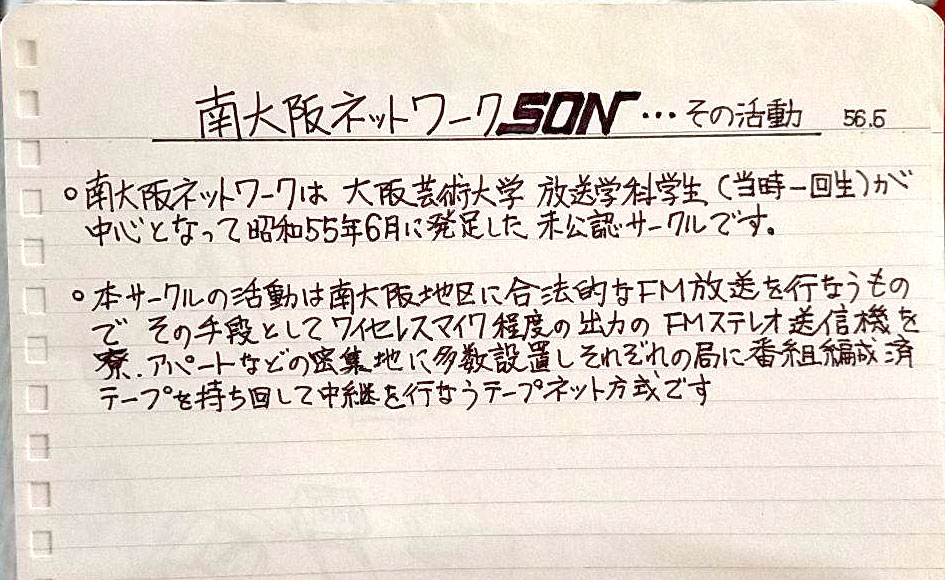 南大阪ネットワークSON…その活動 56.5
○南大阪ネットワークは 大阪芸術大学 放送学科学生(当時一回生)が
中心となって昭和55年6月に発足した 未公認サークルです。
○本サークルの活動は南大阪地区に合法的なFM放送を行なうもの
で その手段としてワイヤレスマイク程度の出力の FMステレオ送信機を
寮、アパートなどの密集地に多数設置しそれぞれの局に番組編成済
テープを持ち回して中継を行なうテープネット方式です